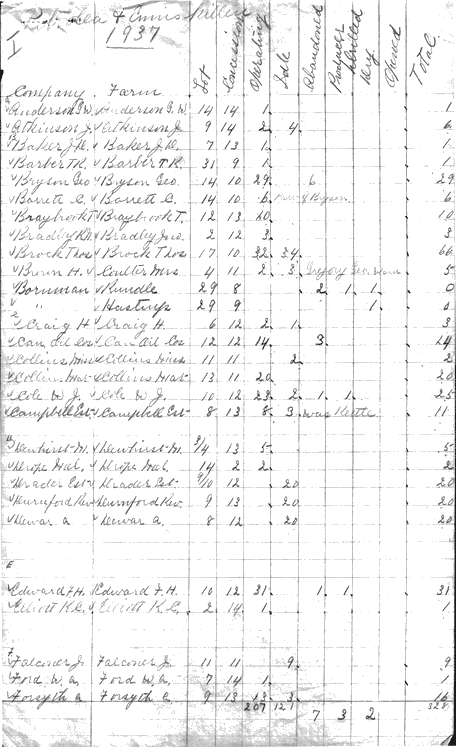 Petrolea & Enniskillen
1937
Company Farm Lot Concession Operating Idle Abandoned Producer Drilled Dry Opened Total
A
Anderson G. W. Anderson G. W. 14 14 1. 1
Atkinson J. Atkinson J. 9 14 2. 4. 6
B
Baker J. D. Baker J. D. 7 13 1. 1
Barber T. R. Barber T. R. 31 9 1. 1
Bryson Geo Bryson Geo. 14 10 29. 6 29
Barrett C. Barrett C. 14 10 6. Bryson 6
Braybrook T. Braybrook T. 12 13 10. 10
Bradley R. H. Bradley Jno. 2 12 3. 3
Brock Thos Brock Thos 17 10 32. 34. 66
H. Coulter Mrs 4 11 2. 3. Gregory Geo. 5
Bornman Rundle 29 8 2 1 1 0
" Hastings 29 9 1. 0
C
Craig H Craig H. 6 12 2. 1. 3
Can Oil Cos Can Oil Cos 12 12 14. 3. 14
Collins Miss Collins Miss 11 11 2. 2
Collins Mar- Collins Mar- 13 11 20. 20
Cole W. J. Cole W. J. 10 12 23. 2. 1. 1. 25
Campbell Est- Campbell Est- 8 13 8. 3. was Kettle 11
D
Dewhirst M. Dewhirst M. 3/4 13 5. 5
Drope Mal. Drope Mal. 14 2 2. 2
Drader Est- Drader Est- 9/10 12 20 20
Durnford Rev. Durnford Rev. 9 13 20. 20
Dewar A. Dewar A. 8 12 20 20
E
Edward F. H. Edward F. H. 10 12 31. 1. 1. 31
Elliott K. C. Elliott K. C. 2 14 1. 1
F.
Falconer J. Falconer J. 11 11 9. 9
Ford W. A. Ford W. A. 7 14 1. 1
Forsyth A Forsyth A. 9 13 13. 3. 16
207 121 7 3 2 328